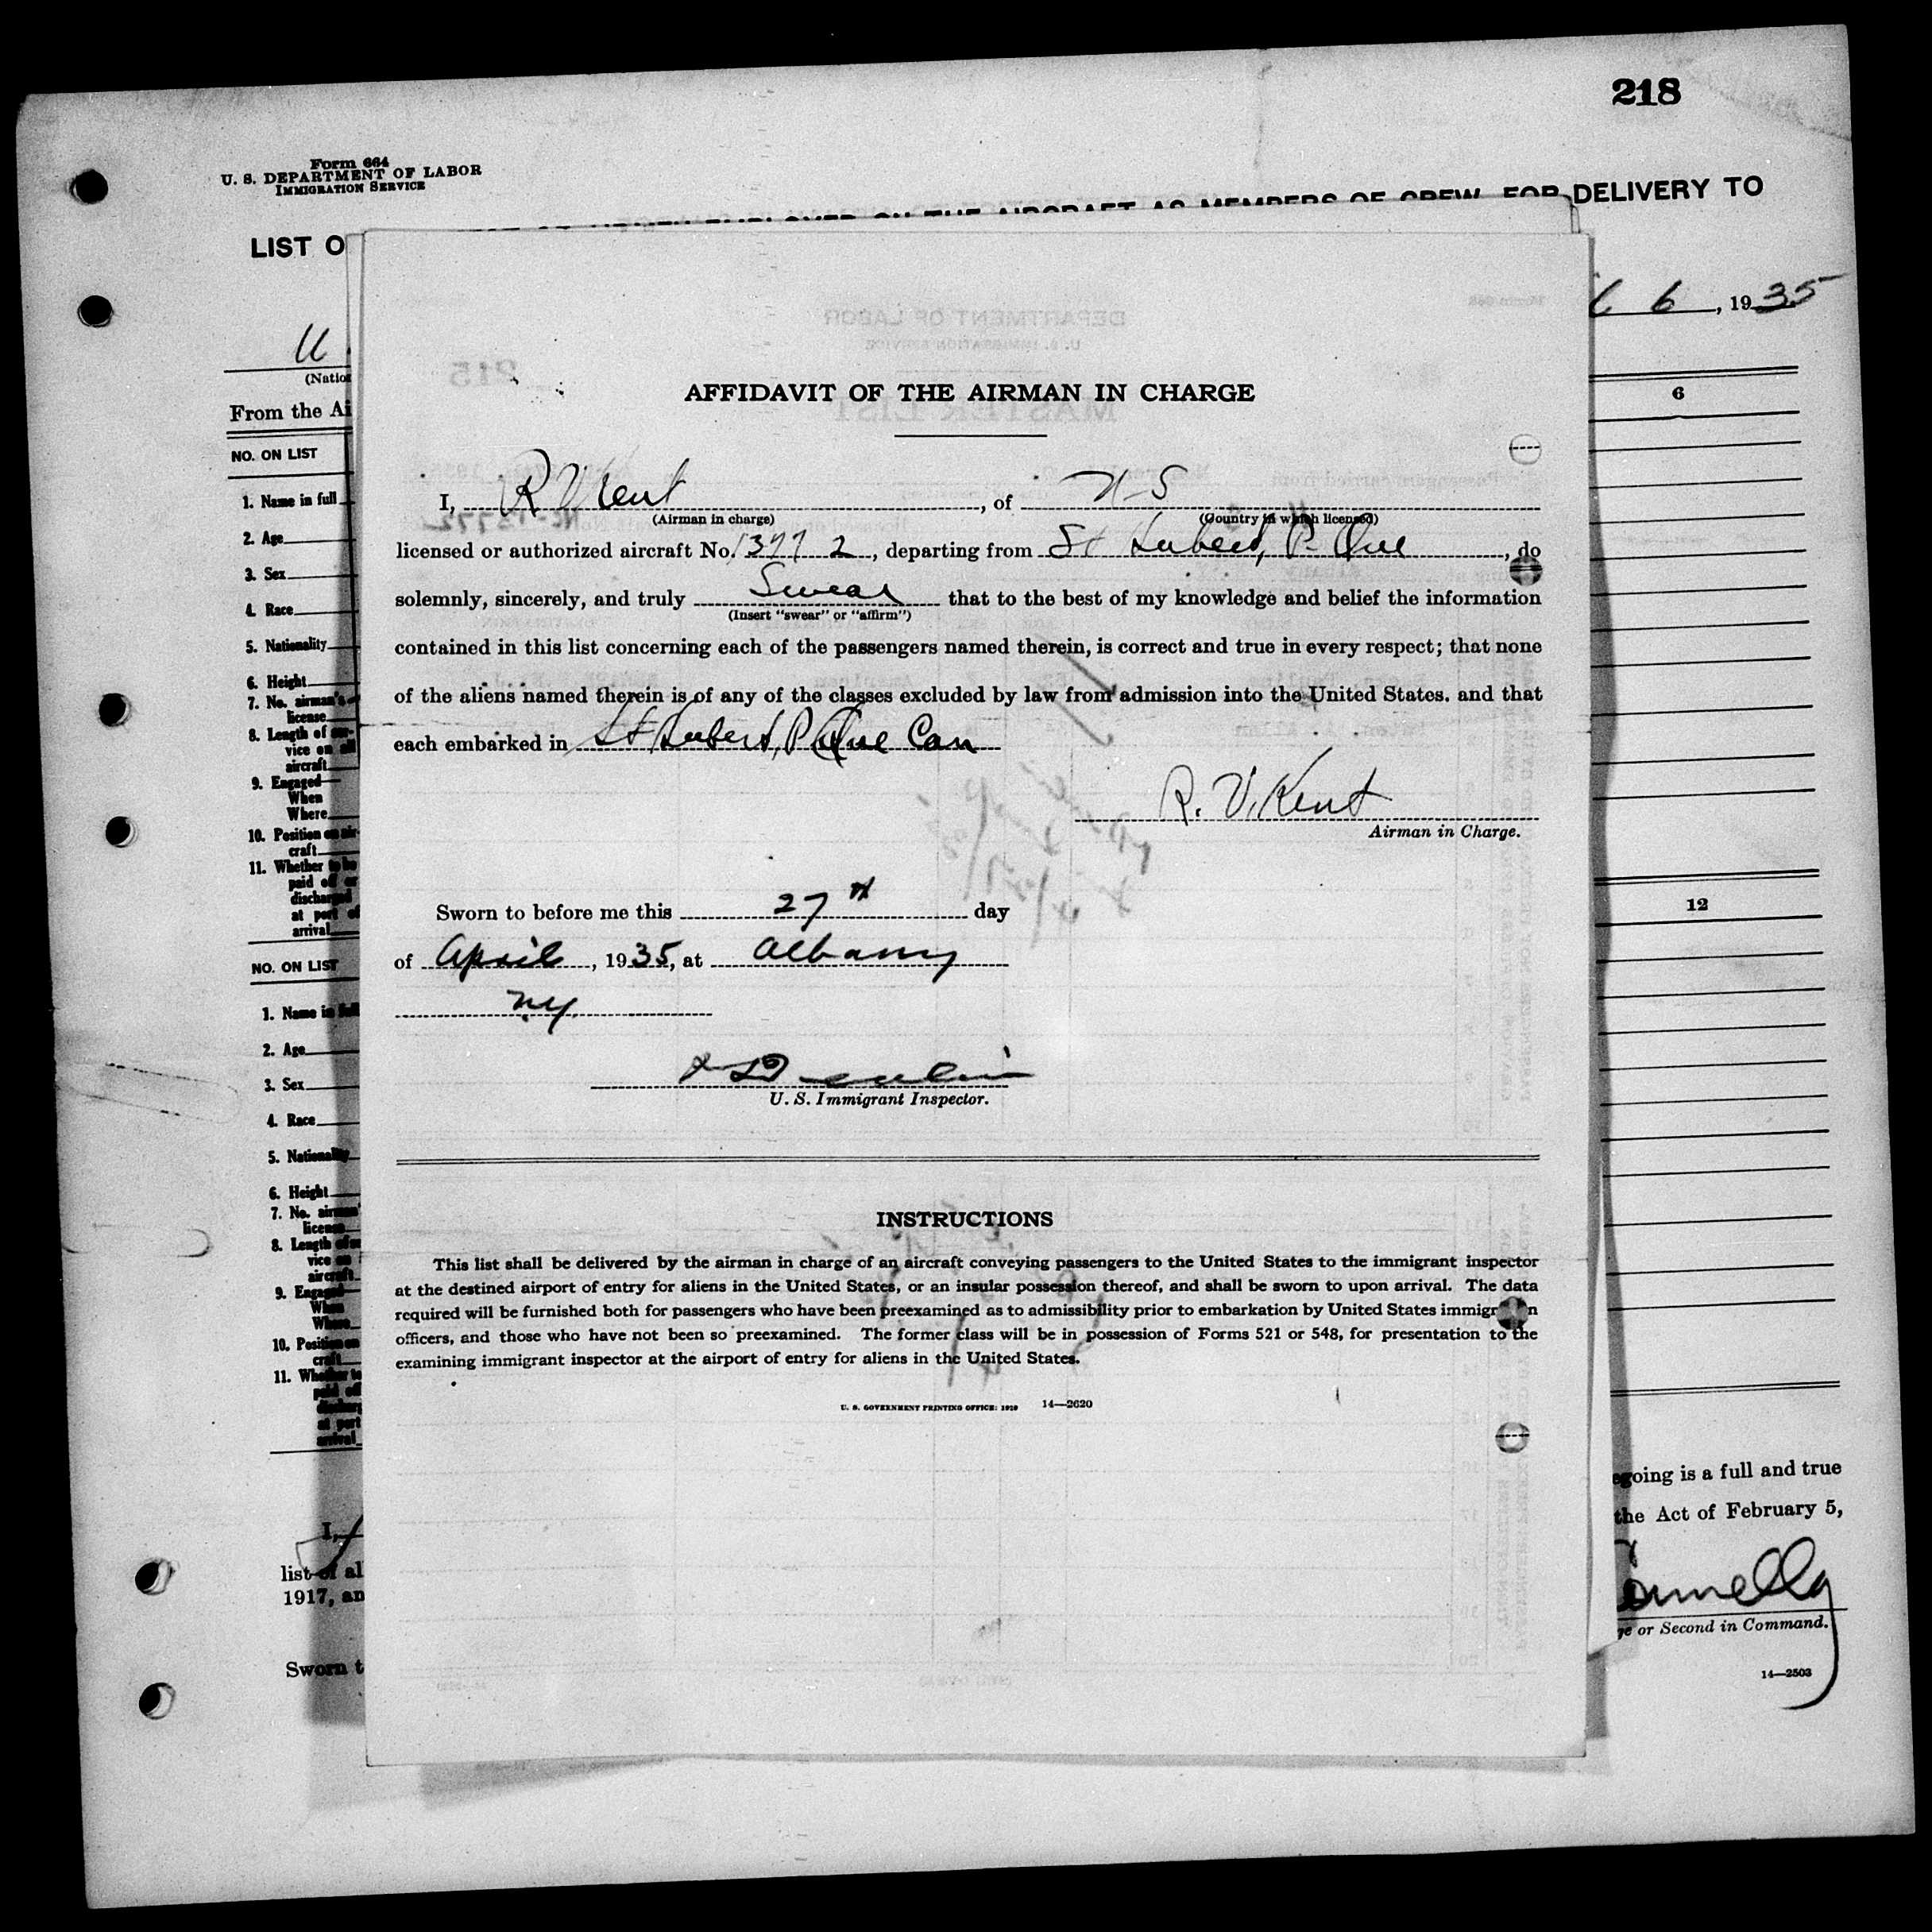 218
Form 664
U. S. DEPARTMENT OF LABOR
IMMIGRATION SERVICE
LIST O
DELIVERY TO
6, 1935
(Nation
From the Ai
NO. ON LIST
6
1. Name in full
2. Age
3. Sex
4. Race
5. Nationality
6. Height
7. No. airman's
license
8. Length of ser-
vice on all
aircraft
9. Engaged
When
Where
10. Position on air-
craft
11. Whether to be
paid off or
discharged
at port of
arrival
12
NO. ON LIST
1. Name in full
2. Age
3. Sex
4. Race
5. Nationality
6. Height
7. No. airman'
license
8. Length of
vice on
aircraft
9. Engaged
When
Where
10. Position on
craft
11. Whether to
paid off
discharg
at port
arrival
I,
list of al
1917, an
Sworn t
AFFIDAVIT OF THE AIRMAN IN CHARGE
I, R V Kent, of U S
(Airman in charge) (Country in which licensed)
licensed or authorized aircraft No. 13772, departing from St Hubert, P. Que, do
solemnly, sincerely, and truly Swear that to the best of my knowledge and belief the information
(Insert "swear" or "affirm")
contained in this list concerning each of the passengers named therein, is correct and true in every respect; that none
of the aliens named therein is of any of the classes excluded by law from admission into the United States. and that
each embarked in St Hubert, P Que Can
R. V. Kent
Airman in Charge.
Sworn to before me this 27th day
of April, 1935, at Albany
N.Y.
U. S. Immigrant Inspector.
INSTRUCTIONS
This list shall be delivered by the airman in charge of an aircraft conveying passengers to the United States to the immigrant inspector
at the destined airport of entry for aliens in the United States, or an insular possession thereof, and shall be sworn to upon arrival. The data
required will be furnished both for passengers who have been preexamined as to admissibility prior to embarkation by United States immigr n
officers, and those who have not been so preexamined. The former class will be in possession of Forms 521 or 548, for presentation to the
examining immigrant inspector at the airport of entry for aliens in the United States.
U. S. GOVERNMENT PRINTING OFFICE: 1929 14—2620
egoing is a full and true
the Act of February 5,
ge or Second in Command.
14—2503